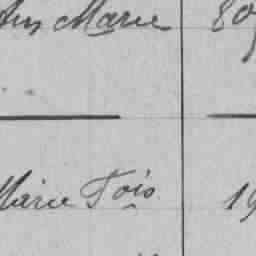 Marie 80
Marie Fois 19